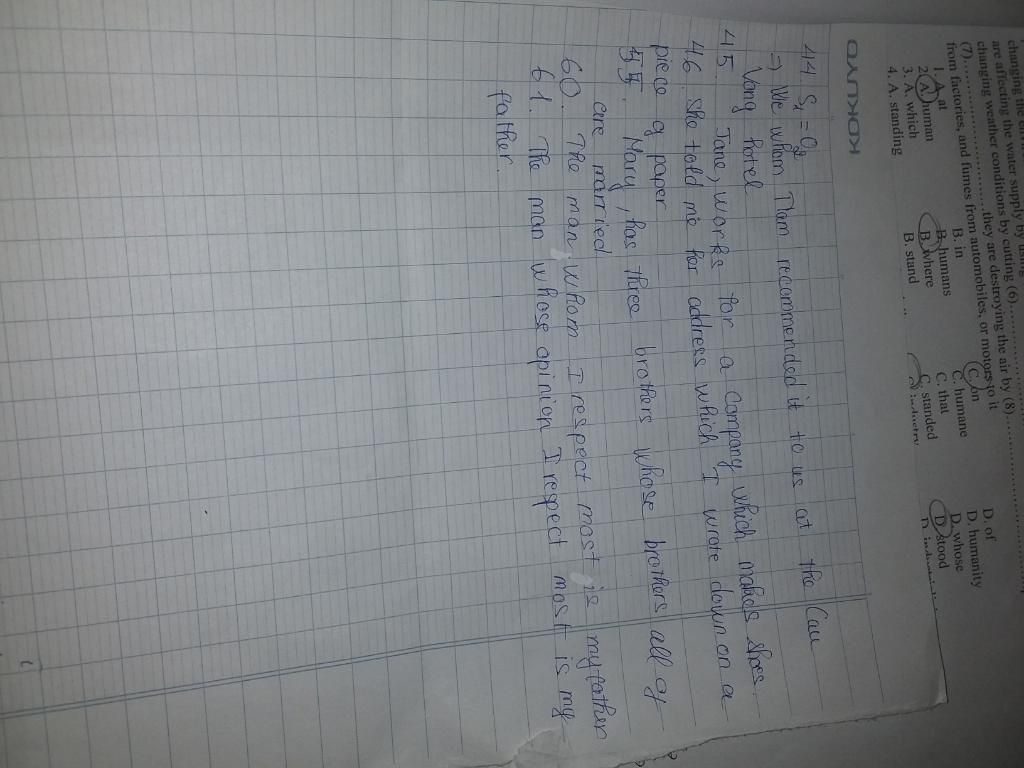 changing the
are affecting the water supply by
changing weather conditions by cutting (6)
(7) they are destroying the air by (8)
from factories, and fumes from automobiles, or motors to it
1. A. at B. in C. on D. of
2. A. human B. humans C. humane D. humanity
3. A. which B. where C. that D. whose
4. A. standing B. stand C. standed D. stood
KOKUYO
44. S1 = O2
=> We whom Tham recommended it to us at the Cau
Vong hotel
45. Jane, works for a company which makes shoes.
46. She told me her address which I wrote down on a
piece of paper
55. Mary, has three brothers whose brothers all of
are married
60. The man whom I respect most is my fathem
61. The man whose opinion I respect most is my
father.